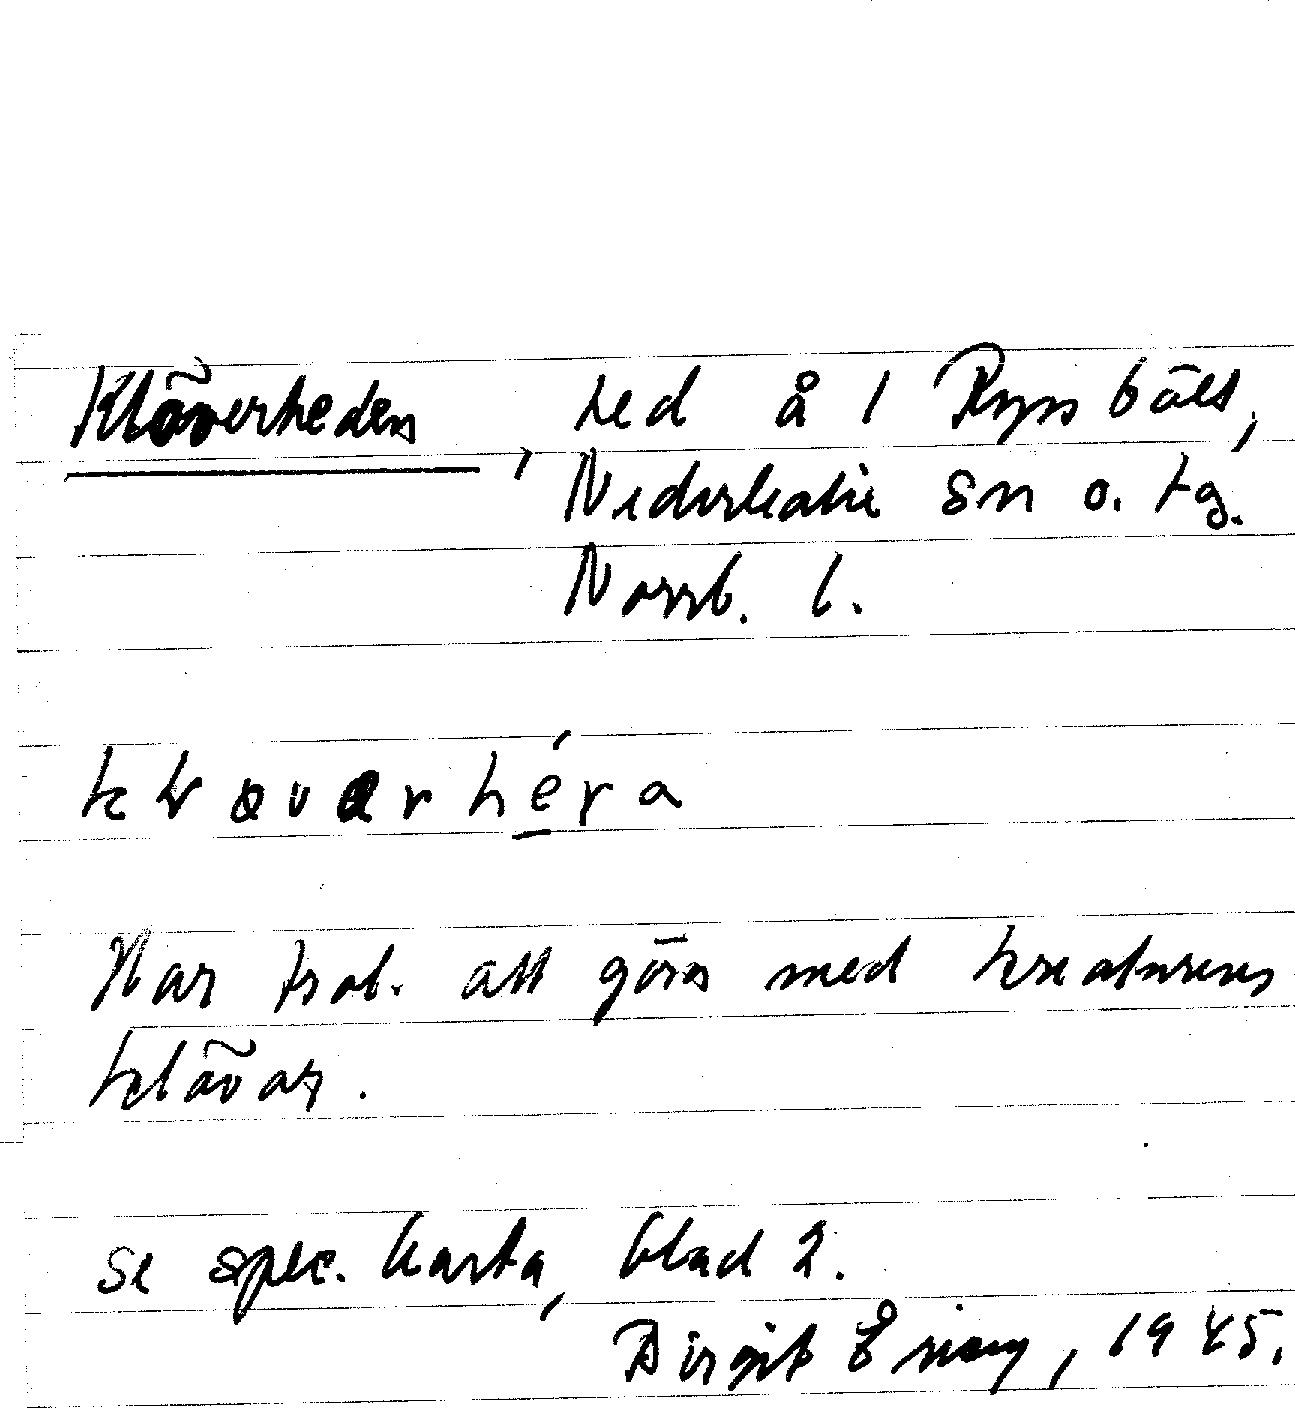 Klöverheden, hed å 1 Ryssbält,
Nederkalix sn o. tg.
Norrb. l.
Har trol. att göra med kreaturens
klövar.
se spec. karta, blad 2.
Birgit 1945.